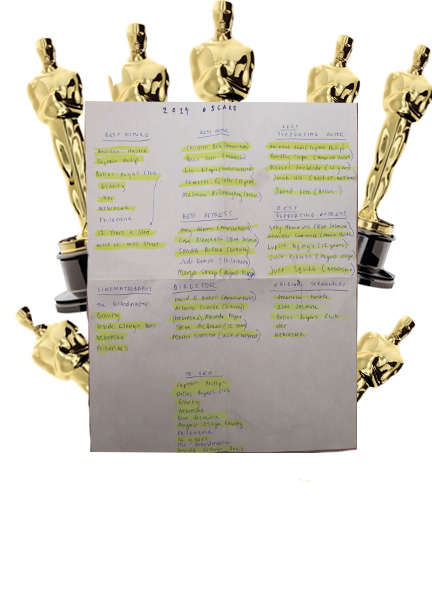 2014 OSCARS
BEST PICTURE
American Hustle
Captain Phillips
Dallas Buyers Club
Gravity
Her
Nebraska
Philomena
12 Years a Slave
Wolf of Wall Street
BEST ACTOR
Christian Bale (American)
Bruce Dern (Nebraska)
Leo
Chiwetel Ejiofor (12 years)
Matthew McConaughey (Dallas)
BEST
SUPPORTING ACTOR
Barkhad Abdi (Captain Phillips)
Bradley Cooper (American Hustle)
Michael Fassbender (12 years)
Jonah Hill (Wolf of
Jared Leto (Dallas)
BEST ACTRESS
Amy Adams (American)
Cate Blanchett (Blue Jasmine)
Sandra Bullock (Gravity)
Judi Dench (Philomena)
Meryl Streep (August Osage)
BEST
SUPPORTING ACTRESS
Sally Hawkins (Blue Jasmine)
Jennifer Lawrence (American Hustle)
Lupita Nyong'o (12 years)
Julia Roberts (August Osage)
June Squibb (Nebraska)
CINEMATOGRAPHY
The Grandmaster
Gravity
Inside Llewyn Davis
Nebraska
Prisoners
DIRECTOR
David O. Russell (American)
Alfonso Cuaron (Gravity)
(Nebraska) Alexander Payne
Steve McQueen (12 years)
Martin Scorsese (Wolf of
ORIGINAL SCREENPLAY
American Hustle
Blue Jasmine
Dallas Buyers Club
Her
Nebraska
TO SEE
Captain Phillips
Dallas Buyers Club
Gravity
Nebraska
Blue Jasmine
August Osage County
Philomena
12 Years
The Grandmaster
Inside Llewyn Davis